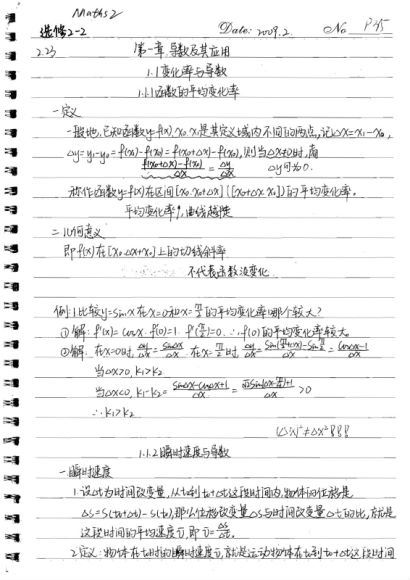 Maths2
选修2-2 Date: 2009.2. No P35
2.23 第一章 导数及其应用
1.1变化率与导数
1.1.1函数的平均变化率
一.定义
一般地,已知函数y=f(x).x₀.x₁是其定义域内不同的两点,记△x=x₁-x₀,
△y=y₁-y₀=f(x₁)-f(x₀)=f(x₀+△x)-f(x₀),则当△x≠0时,商
f(x₀+△x)-f(x₀)/△x = △y/△x △y可为0.
称作函数y=f(x)在区间[x₀.x₀+△x]([x₀+△x.x₀])的平均变化率。
平均变化率↑,曲线越陡
二.几何意义
即f(x)在[x₀.△x+x₀]上的切线斜率
不代表函数没变化
例:1.比较y=sinx在x=0和x=π/2的平均变化率哪个较大?
①解: f'(x)=cosx. f'(0)=1. f'(π/2)=0. ∴f(0)的平均变化率较大。
②解: 在x=0时,△y/△x=sin△x/△x. 在x=π/2时,△y/△x=sin(π/2+△x)-sinπ/2/△x=cos△x-1/△x
当△x>0,k₁>k₂
当△x<0,k₁-k₂=sin△x-cos△x+1/△x=√2sin(△x-π/4)+1/△x>0
∴k₁>k₂
(△x)²≠△x²!!!
1.1.2瞬时速度与导数
一.瞬时速度
1.设△t为时间改变量,从t₀到t₀+△t这段时间内,物体的位移是
△s=s(t₀+△t)-s(t₀),那么位移改变量△s与时间改变量△t的比,就是
这段时间的平均速度v̄,即v̄=△s/△t.
2.定义:物体在t₀时的瞬时速度v,就是运动物体在t₀到t₀+△t这段时间